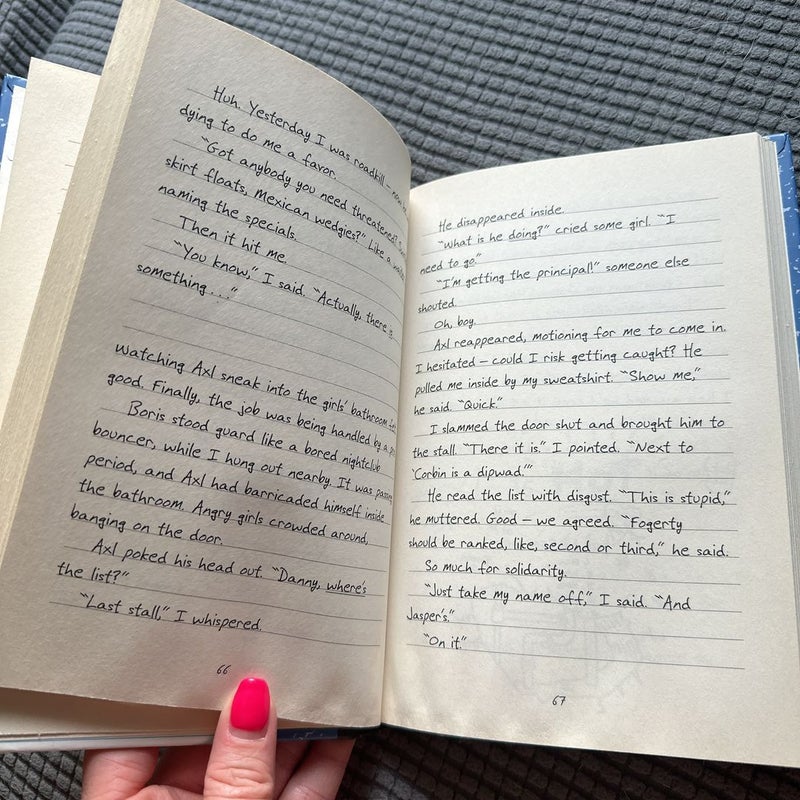 Huh. Yesterday I was roadkill – now
dying to do me a favor.
"Got anybody you need threatened?
skirt floats, Mexican wedgies?" Like a
naming the specials.
Then it hit me.
"You know," I said. "Actually, there is
something . . ."
watching Axl sneak into the girls' bathroom
good. Finally, the job was being handled by a
Boris stood guard like a bored nightclub
bouncer, while I hung out nearby. It was passing
period, and Axl had barricaded himself inside
the bathroom. Angry girls crowded around,
banging on the door.
Axl poked his head out. "Danny, where's
the list?"
"Last stall," I whispered.
66
He disappeared inside.
"What is he doing?" cried some girl. "I
need to go."
"I'm getting the principal!" someone else
shouted.
Oh, boy.
Axl reappeared, motioning for me to come in.
I hesitated – could I risk getting caught? He
pulled me inside by my sweatshirt. "Show me,"
he said. "Quick."
I slammed the door shut and brought him to
the stall. "There it is." I pointed. "Next to
'Corbin is a dipwad.'"
He read the list with disgust. "This is stupid,"
he muttered. Good – we agreed. "Fogerty
should be ranked, like, second or third," he said.
So much for solidarity.
"Just take my name off," I said. "And
Jasper's."
"On it."
67